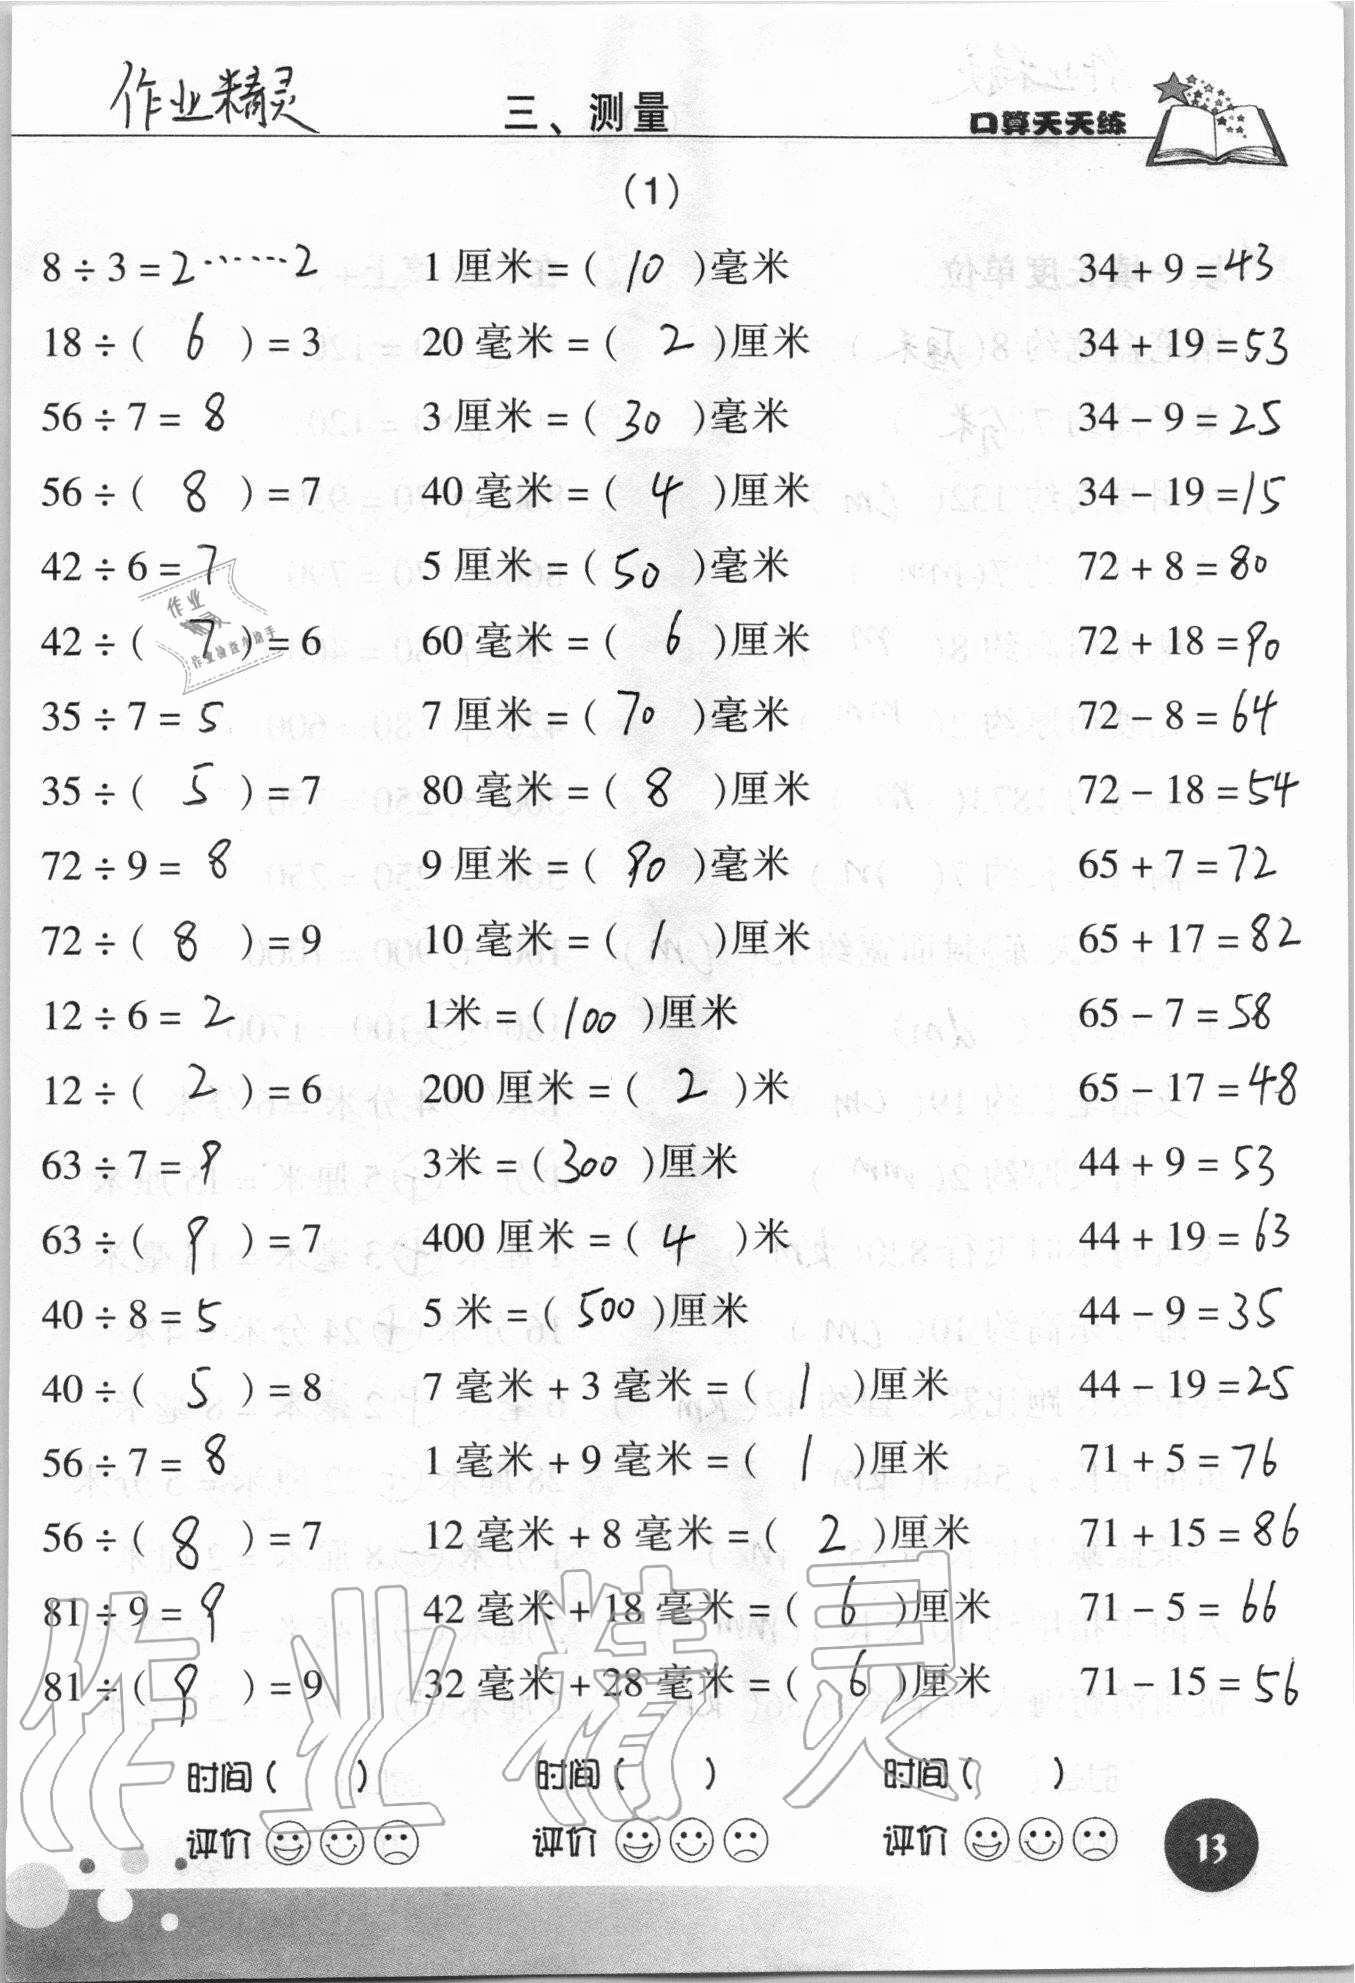 作业精灵 三、测量 口算天天练
(1)
8÷3=2……2 1厘米=(10)毫米 34+9=43
18÷(6)=3 20毫米=(2)厘米 34+19=53
56÷7=8 3厘米=(30)毫米 34-9=25
56÷(8)=7 40毫米=(4)厘米 34-19=15
42÷6=7 5厘米=(50)毫米 72+8=80
42÷(7)=6 60毫米=(6)厘米 72+18=90
35÷7=5 7厘米=(70)毫米 72-8=64
35÷(5)=7 80毫米=(8)厘米 72-18=54
72÷9=8 9厘米=(90)毫米 65+7=72
72÷(8)=9 10毫米=(1)厘米 65+17=82
12÷6=2 1米=(100)厘米 65-7=58
12÷(2)=6 200厘米=(2)米 65-17=48
63÷7=9 3米=(300)厘米 44+9=53
63÷(9)=7 400厘米=(4)米 44+19=63
40÷8=5 5米=(500)厘米 44-9=35
40÷(5)=8 7毫米+3毫米=(1)厘米 44-19=25
56÷7=8 1毫米+9毫米=(1)厘米 71+5=76
56÷(8)=7 12毫米+8毫米=(2)厘米 71+15=86
81÷9=9 42毫米+18毫米=(6)厘米 71-5=66
81÷(9)=9 32毫米+28毫米=(6)厘米 71-15=56
作业精灵
时间( ) 时间( ) 时间( )
评价 评价 评价
13